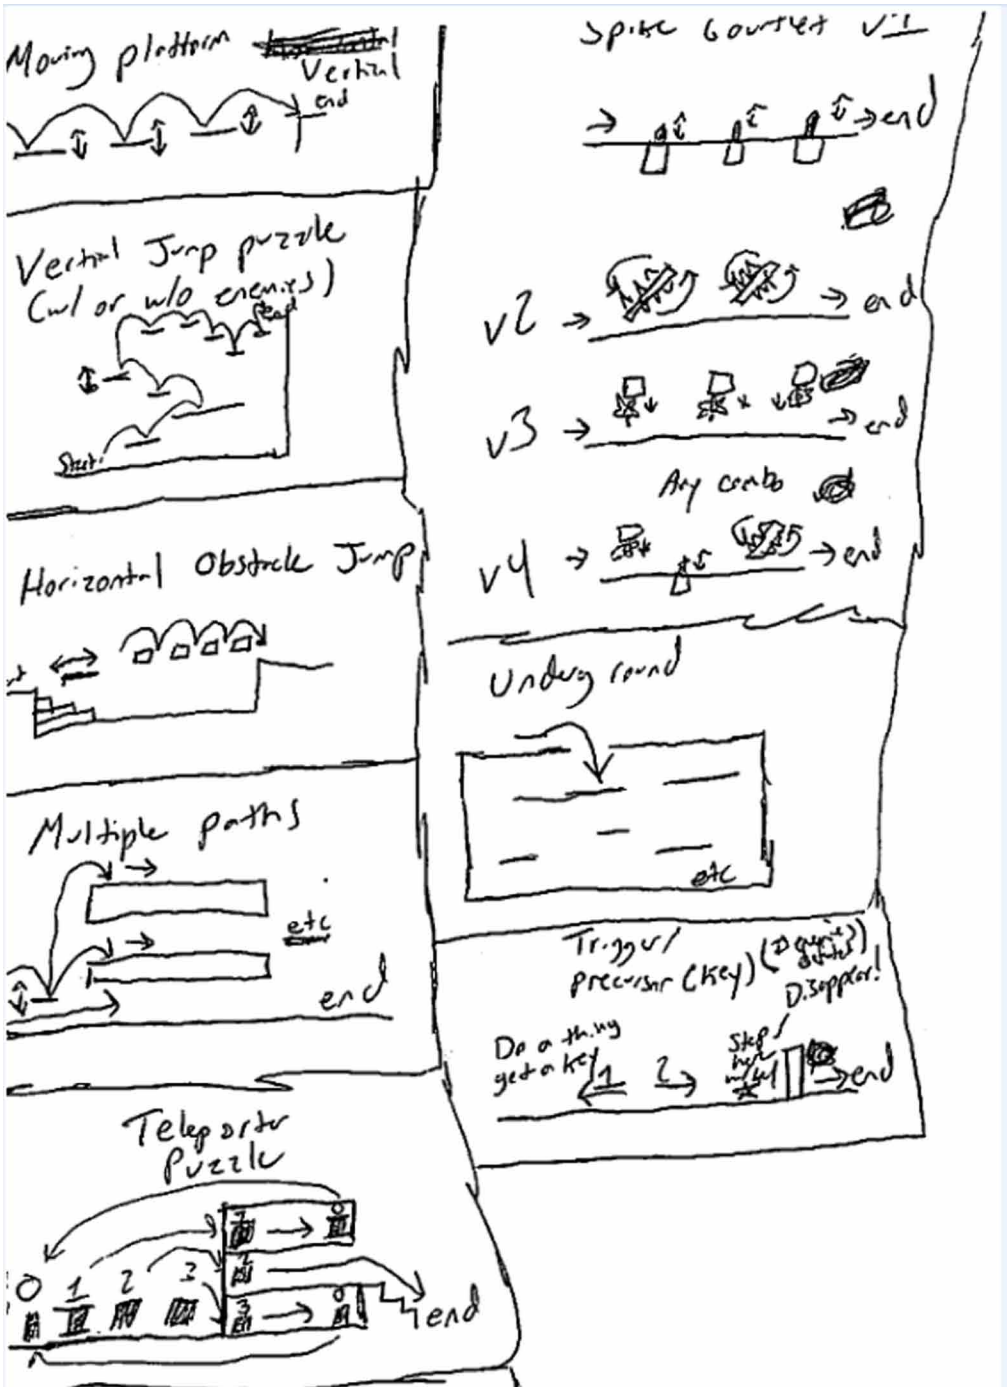 Moving platform
Vertical
end
Vertical Jump puzzle
(w/ or w/o enemies)
end
Start
Horizontal Obstacle Jump
Multiple paths
etc
end
Teleporter
Puzzle
0
1
2
3
1
0
2
3
0
end
Spike Gountlet v1
end
v2
end
v3
end
Any combo
v4
end
Underground
etc
Trigger/
precursor (key)
Disappear!
Do a thing
get a key
1
2
Step
here
w/
end